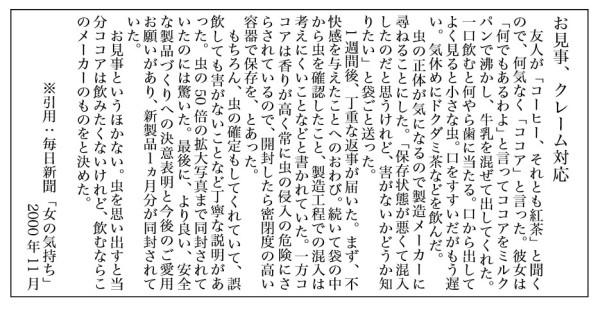 お見事、クレーム対応
友人が「コーヒー、それとも紅茶」と聞く
ので、何気なく「ココア」と言った。彼女は
「何でもあるわよ」と言ってココアをミルク
パンで沸かし、牛乳を混ぜて出してくれた。
一口飲むと何やら歯に当たる。口から出して
よく見ると小さな虫。口をすすいだがもう遅
い。気休めにドクダミ茶などを飲んだ。
虫の正体が気になるので製造メーカーに
尋ねることにした。「保存状態が悪くて混入
したのだと思うけれど、害がないかどうか知
りたい」と袋ごと送った。
1週間後、丁重な返事が届いた。まず、不
快感を与えたことへのおわび。続いて袋の中
から虫を確認したこと、製造工程での混入は
考えにくいことなどと書かれていた。一方コ
コアは香りが高く常に虫の侵入の危険にさ
らされているので、開封したら密閉度の高い
容器で保存を、とあった。
もちろん、虫の確定もしてくれていて、誤
飲しても害がないことなど丁寧な説明があ
った。虫の50倍の拡大写真まで同封されて
いたのには驚いた。最後に、より良い、安全
な製品づくりへの決意表明と今後のご愛用
お願いがあり、新製品1ヵ月分が同封されて
いた。
お見事というほかない。虫を思い出すと当
分ココアは飲みたくないけれど、飲むならこ
のメーカーのものをと決めた。
※引用:毎日新聞「女の気持ち」
2000年11月